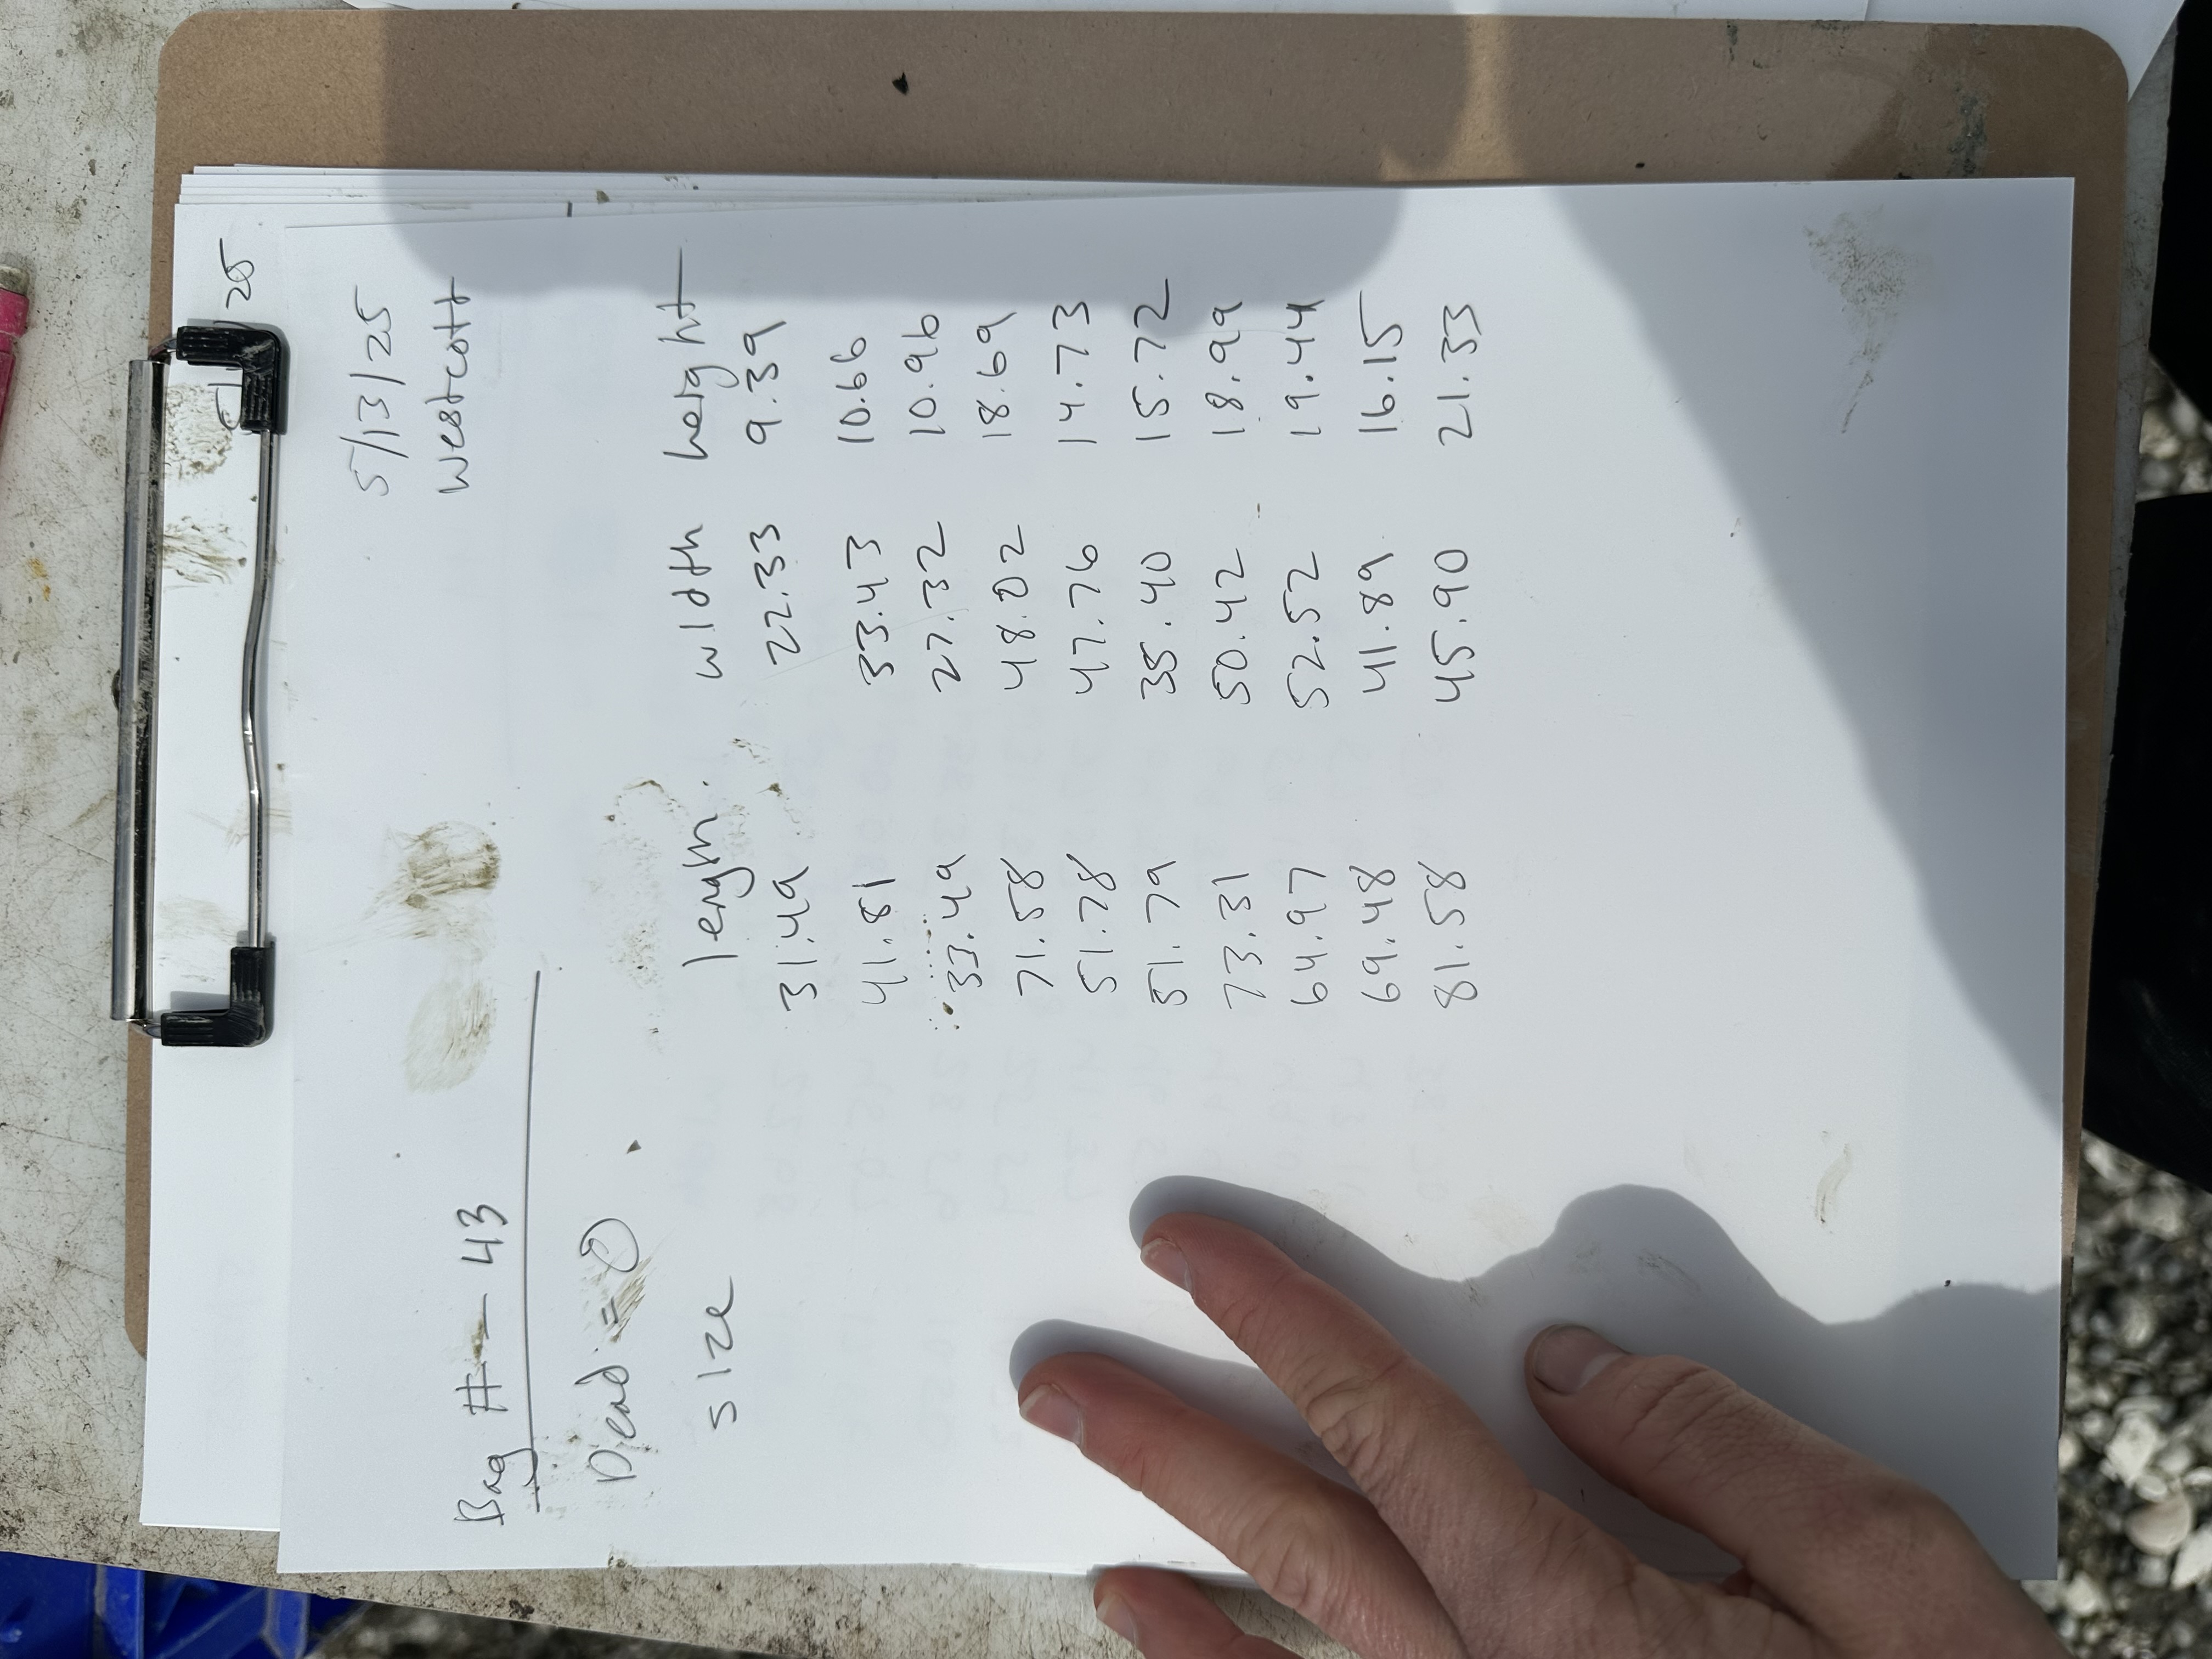 25
5/13/25
Westcott
Bag # - 43
Dead = 0
size length. width height
31.49 22.33 9.39
41.81 33.43 10.66
33.49 27.32 10.96
71.58 48.02 18.69
51.78 47.76 14.73
51.79 35.40 15.72
73.31 50.42 18.99
64.97 52.52 19.44
69.48 41.89 16.15
81.58 45.90 21.33